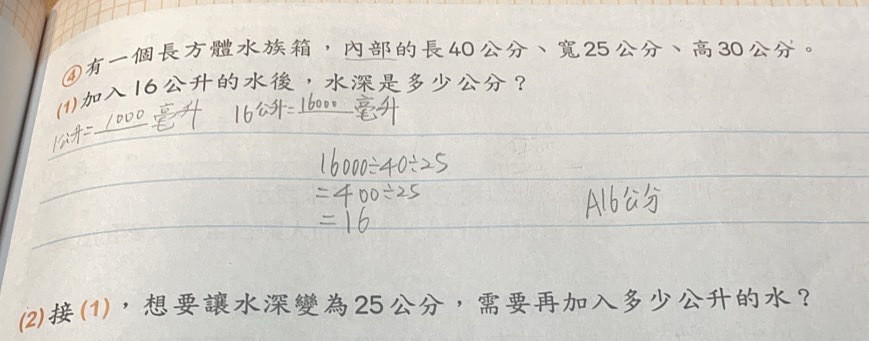 ④有一個長方體水族箱，內部的長40公分、寬25公分、高30公分。
(1)加入16公升的水後，水深是多少公分？
1公升=1000毫升 16公升=16000毫升
16000÷40÷25
=400÷25
=16
A16公分
(2)接(1)，想要讓水深變為25公分，需要再加入多少公升的水？